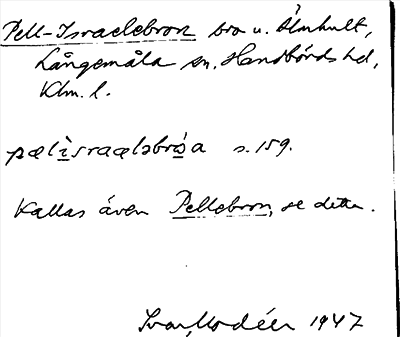 Pell-Israelebron bro u. Älmhult,
Långemåla sn, Handbörds hd,
Klm. l.
pælìsraæləbróa s. 159.
Kallas även Pellebron, se detta.
Ivar Modéer 1947